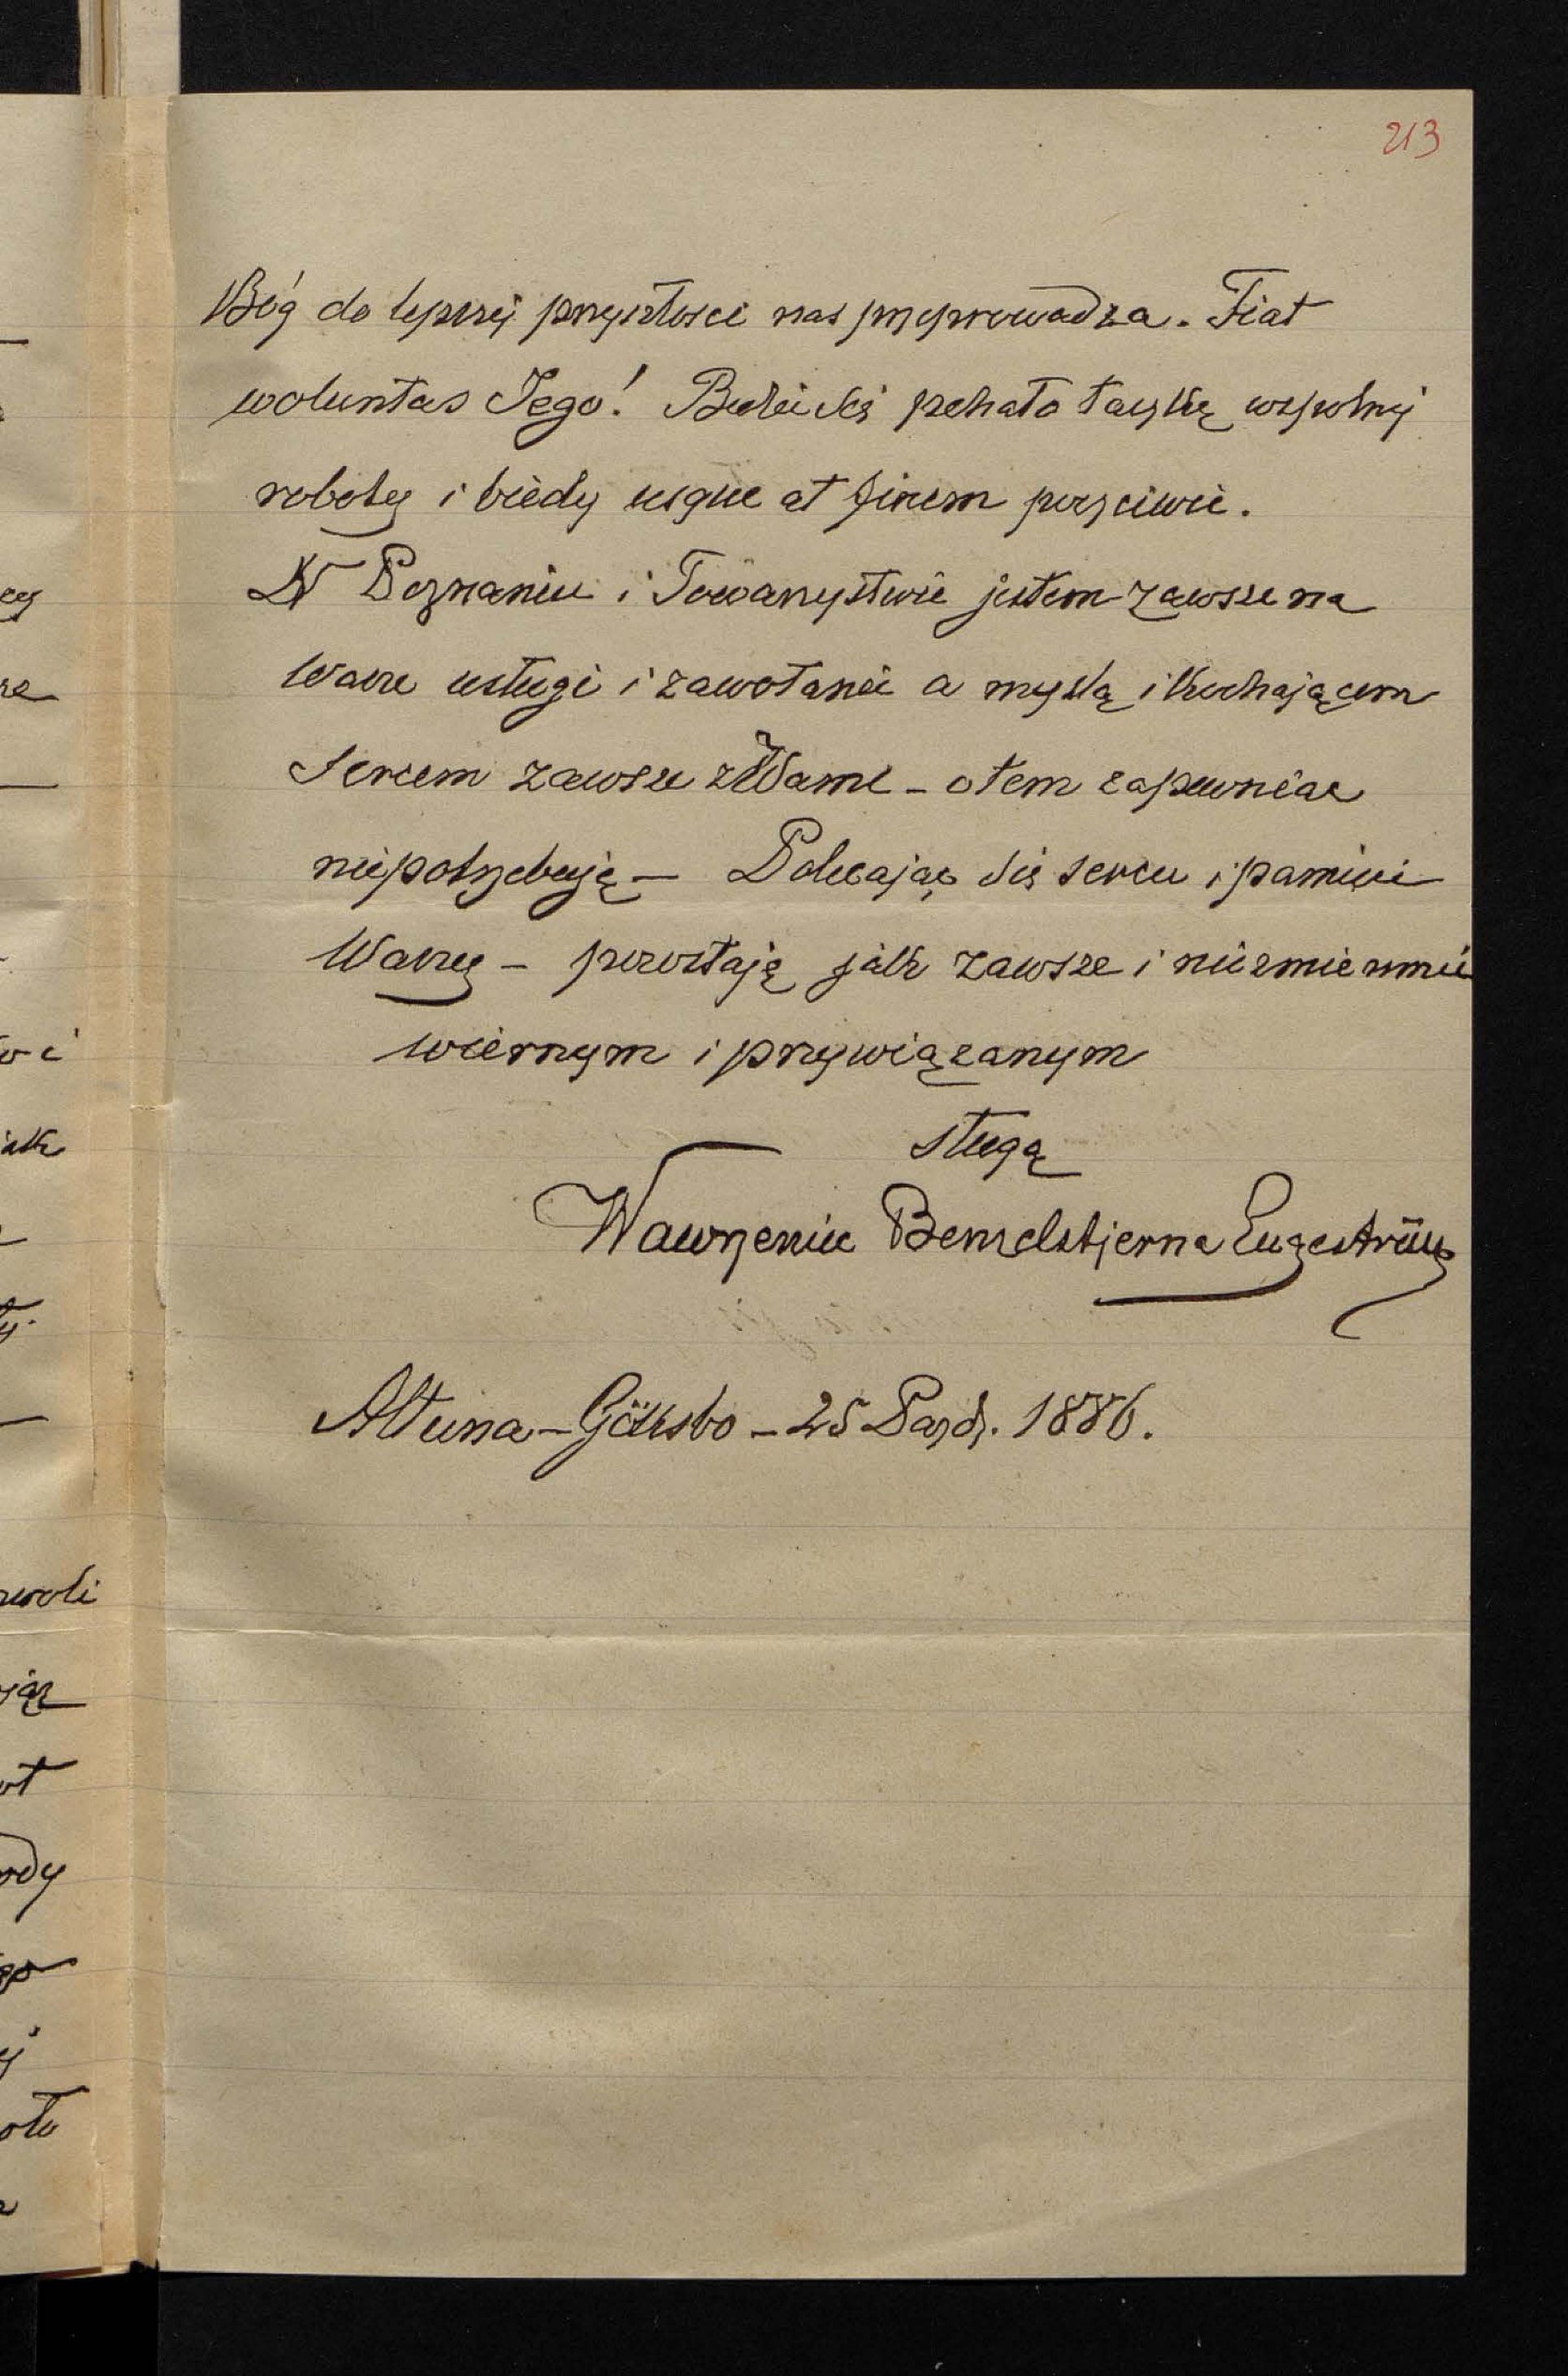 213
Bóg do lepszej przyszłosci nas przeprowadza. Fiat
woluntas Jego! pchało taczkę wspolnej
roboty i biedy usque at finem poczciwie.
W Poznaniu i Towarzystwie jestem zawsze na
Wasze usługi i zawołanie a myslą i kochającem
sercem zawsze z Wami – o tem zapewniac
niepotrzebuję – Polecając się sercu i pamieci
Waszej – pozostaję jak zawsze i niezmiennie
wiernym i przywiązanym
sługą
Wawrzeniec Benzelstjerna Engeström
Altuna – Göksbo – 25 Pazdz. 1886.